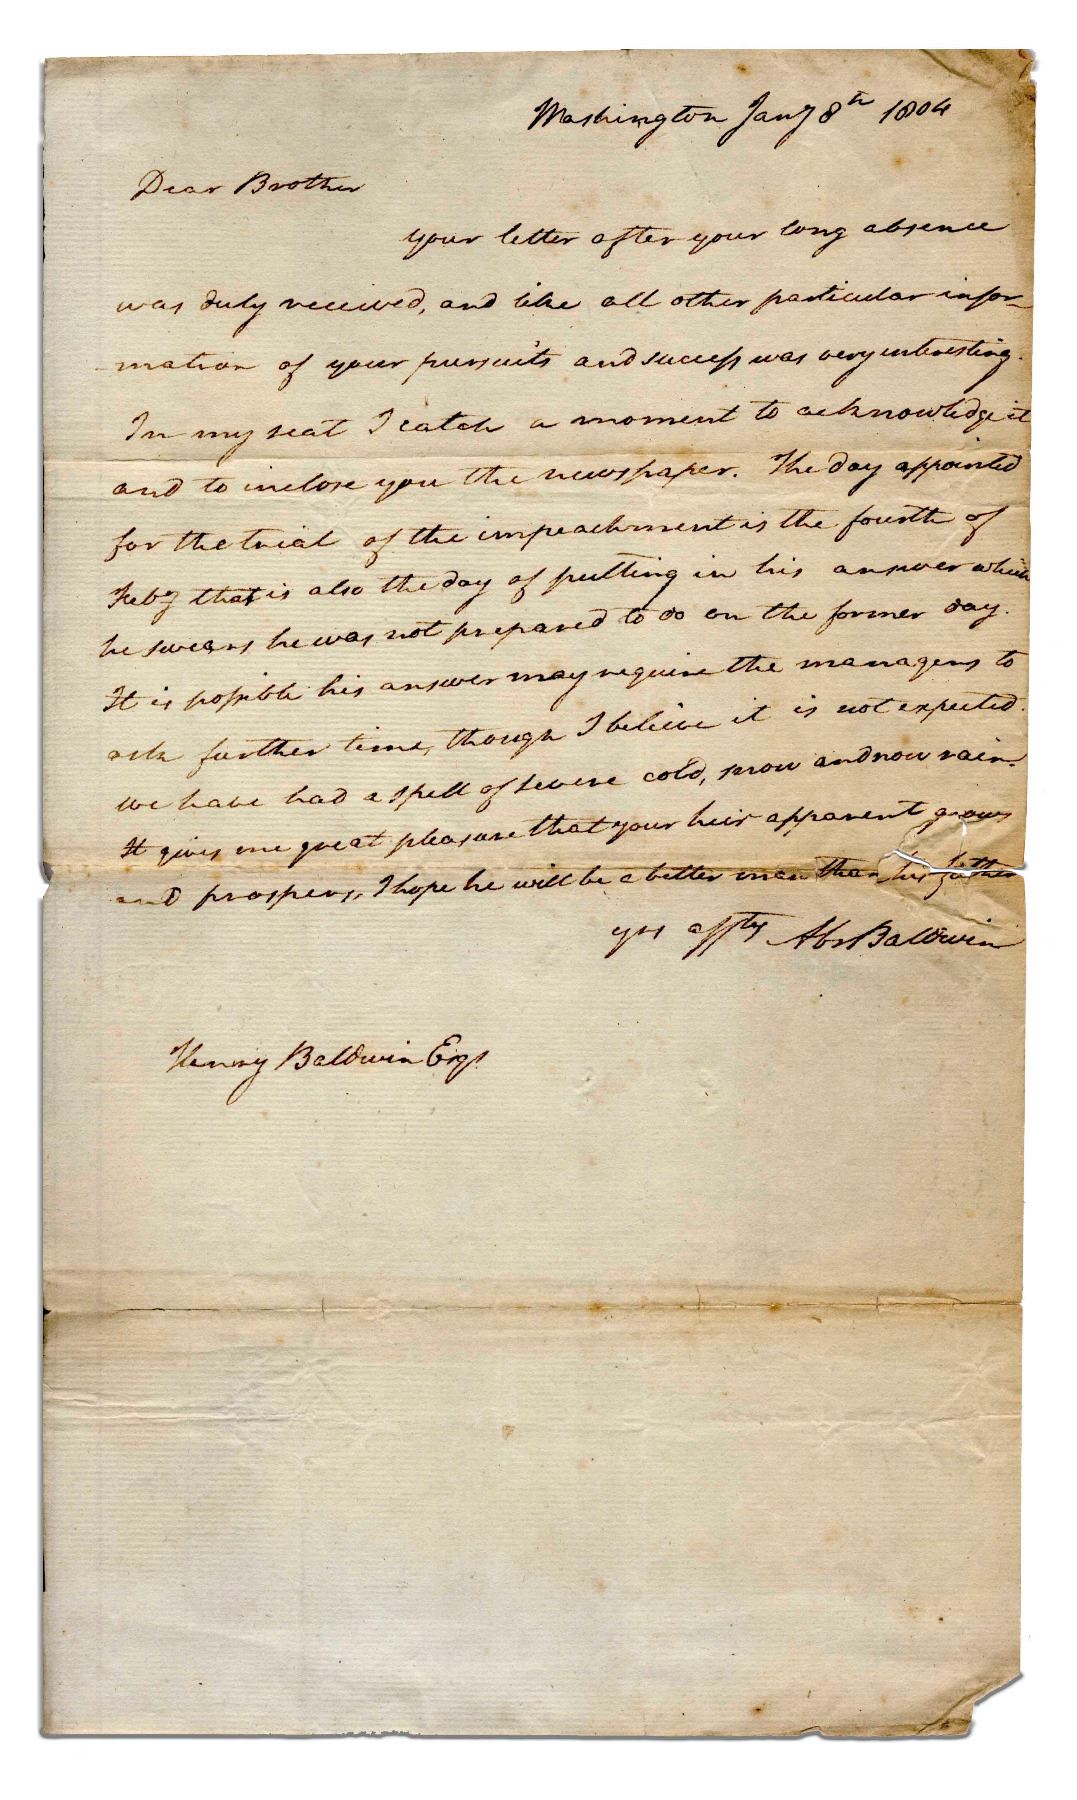 Washington Jany 8th 1804
Dear Brother
your letter after your long absence
was duly received, and like all other particular infor-
mation of your pursuits and success was very interesting.
In my seat I catch a moment to acknowledge it
and to inclose you the newspaper. The day appointed
for the trial of the impeachment is the fourth of
Feby that is also the day of putting in his answer which
he swears he was not prepared to do on the former day.
It is possible his answer may require the managers to
ask further time, though I believe it is not expected.
we have had a spell of severe cold, snow and now rain.
It gives me great pleasure that your heir apparent grows
and prospers, I hope he will be a better man than his father
yrs affty Abr Baldwin
Henry Baldwin Esqr